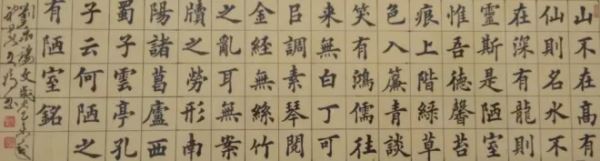 山不在高有
仙則名水不
在深有龍則
靈斯是陋室
惟吾德馨苔
痕上階綠草
色入簾青談
笑有鴻儒往
来無白丁可
㠯調素琴閱
金經無絲竹
之亂耳無案
牘勞形南
陽諸葛廬西
蜀子雲亭孔
子云何陋之
有陋室銘
劉禹錫文